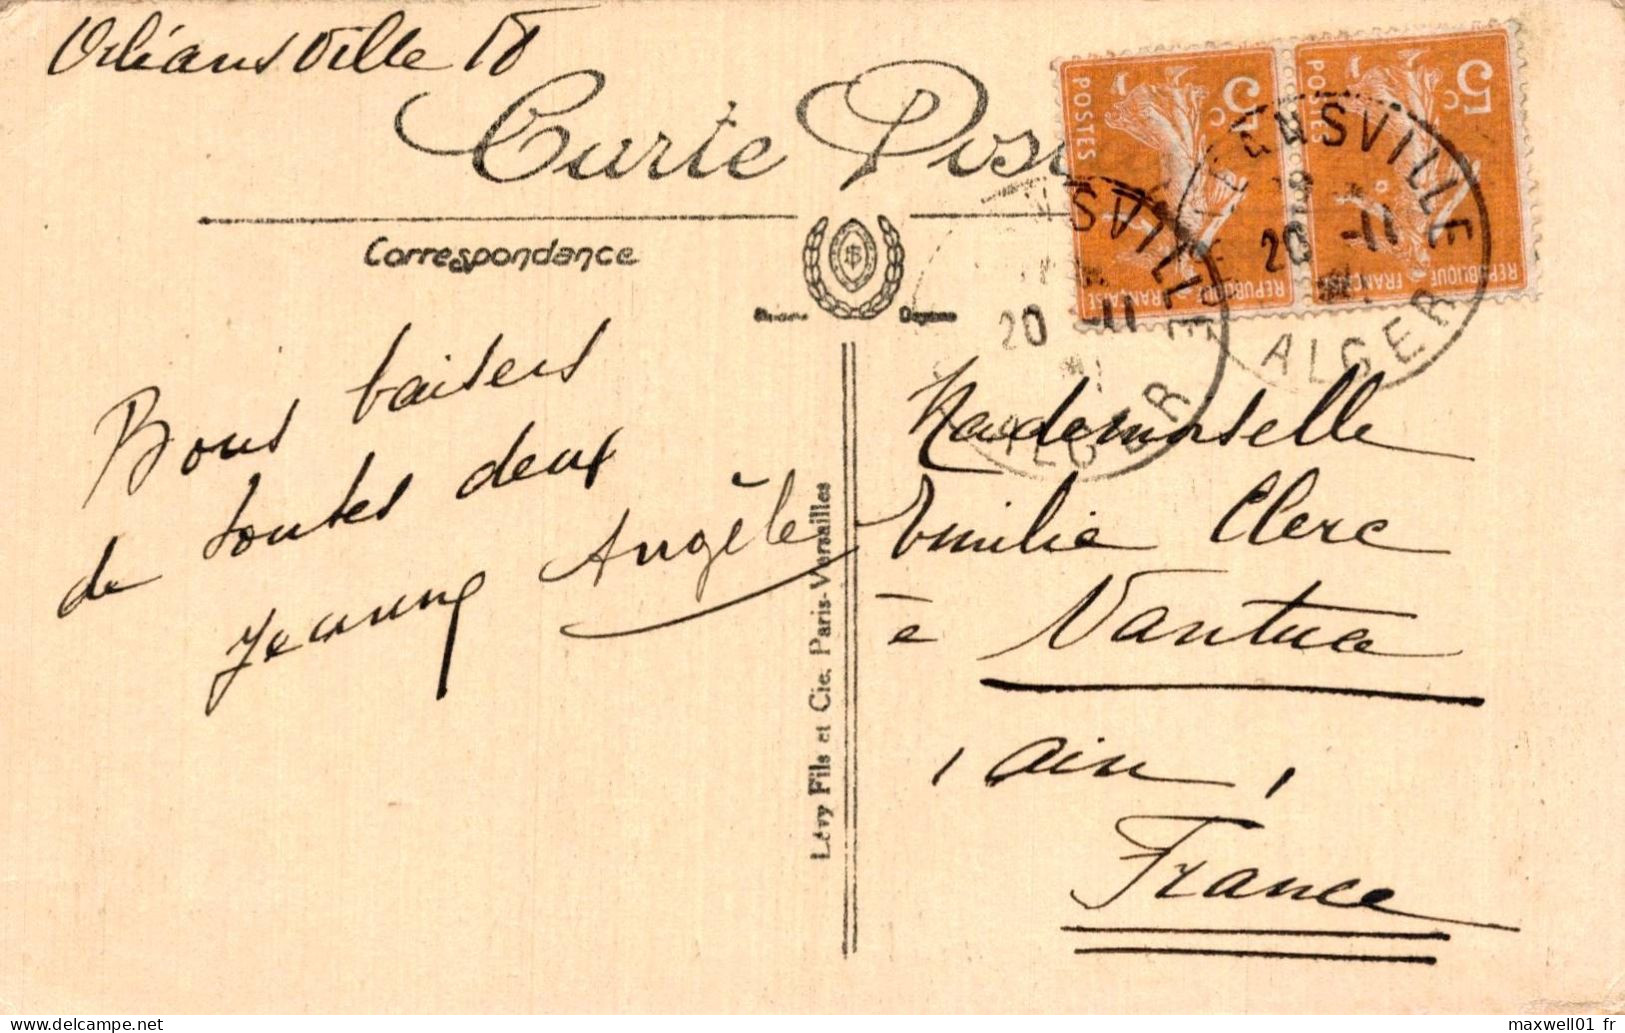 Orléansville
Carte Pos
Correspondance
Bons baisers
de toutes deux
Jeanne Angèle
Lévy Fils et Cie, Paris-Versailles
5c
POSTES
REPUBLIQUE FRANÇAISE
5c
POSTES
REPUBLIQUE FRANÇAISE
NSVILLE
20 -11
ALGER
SVILLE
20 -11
ALGER
Mademoiselle
Emilie Clerc
à Nantua
Ain
France
maxwell01 fr